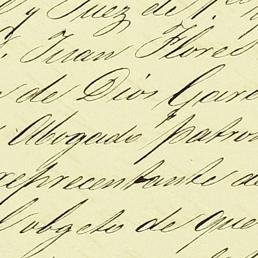 y Juez de 1ª
Juan Flores
de Dios Garc
Abogado patron
representante de
l obgeto de que